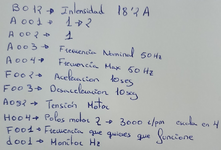 B012 → Intensidad 18'2 A
A001 → 1→2
A002 → 1
A003 → Frecuencia Nominal 50Hz
A004 → Frecuencia Max 50 Hz
F002 → Aceleracion 10seg
F003 → Desaceleracion 10seg
A082 → Tension Motor
H004 → Polos motor 2 → 3000 r/pm en 4
F001 → Frecuencia que quieres que funcione
d001 → Monitor Hz